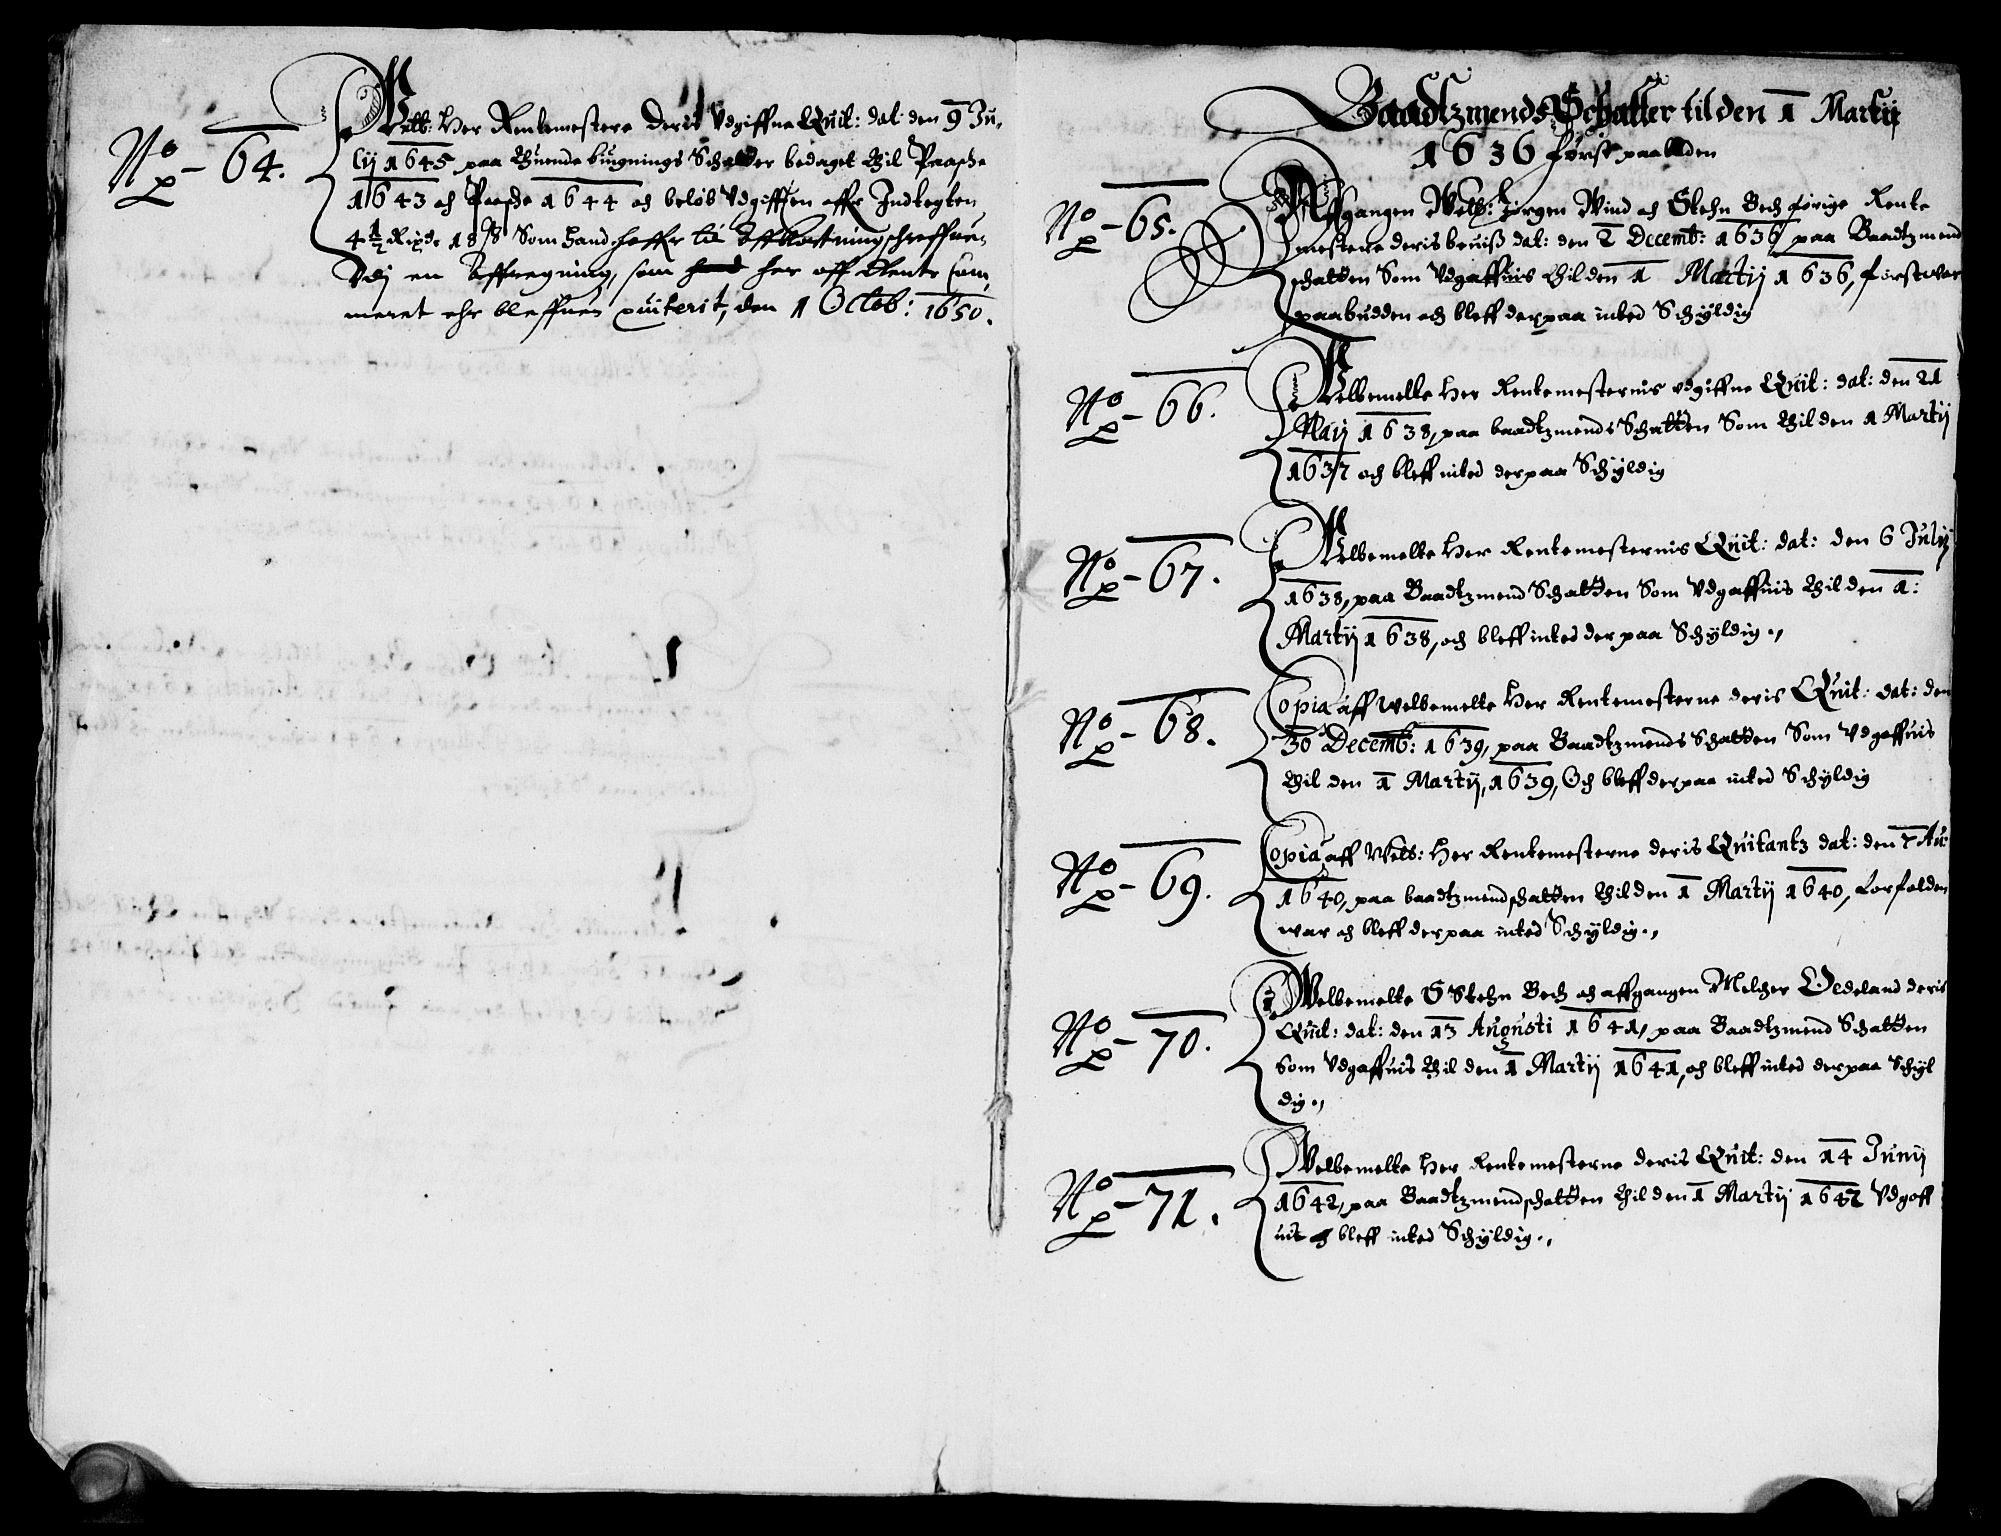 No - 64.
Welb: Her Rentemestere deris Udgiffne Quit: dat: den 9 Ju,
lij 1645 paa Thuende bugnings Schatter bedaget Thil Paasche
1643 och Paasche 1644 och beløb Udgifften offr Indtegten
4½ Rixd. 18 β Som hand haffr til Affkortning schreffuen
Udj en Affregning, som her aff Rente Cam,
meret ehr bleffuen quiterit, den 1 Octob: 1650.
Baadtzmends Schatter til den 1 Martij
1636 først paabuden
No - 65.
Affgangen Welb: Jørgen Wind och Stehn Bech førige Rente
mestere deris beuiß dat: den 2 Decemb: 1636 paa Baadtzmend
schatten Som Udgaffuis Thil den 1 Martij 1636, først war
paabudden och bleff derpaa inted Schyldig
No - 66.
Welbemelte Her Rentemesternis udgiffne Quit: dat: den 21
Maij 1638, paa baadtzmends Schatten Som Thil den 1 Martij
1637 och bleff inted derpaa Schyldig
No - 67.
Welbemelte Her Rentemesternis Quit: dat: den 6 Julij
1638, paa Baadtzmend Schatten Som Udgaffuis Thil den 1:
Martij 1638, och bleff inted der paa Schyldig.,
No - 68.
Copia aff welbemelte Her Rentemesterne deris Quit: dat: den
30 Decemb: 1639, paa Baadtzmends Schatten Som Udgaffuis
Thil den 1 Martij, 1639, Och bleff derpaa inted Schyldig
No - 69.
Copia aff Welb: Her Rentemesterne deris Quitantz dat: den 7 Au:
1640, paa baadtzmendschatten Thil den 1 Martij 1640, forfalden
war och bleff derpaa inted Schyldig.,
No - 70.
Welbemelte S Stehn Bech och affgangen Melcher Oedeland deris
Quit: dat: den 13 Augusti 1641, paa Baadtzmend Schatten
Som Udgaffuis Thil den 1 Martij 1641, och bleff inted derpaa Schyl
dig.,
No - 71.
Welbemelte Her Rentemesterne deris Quit: den 14 Junij
1642, paa Baadtzmendschatten Thil den 1 Martij 1642 Udgaff
uis och bleff inted Schyldig.,